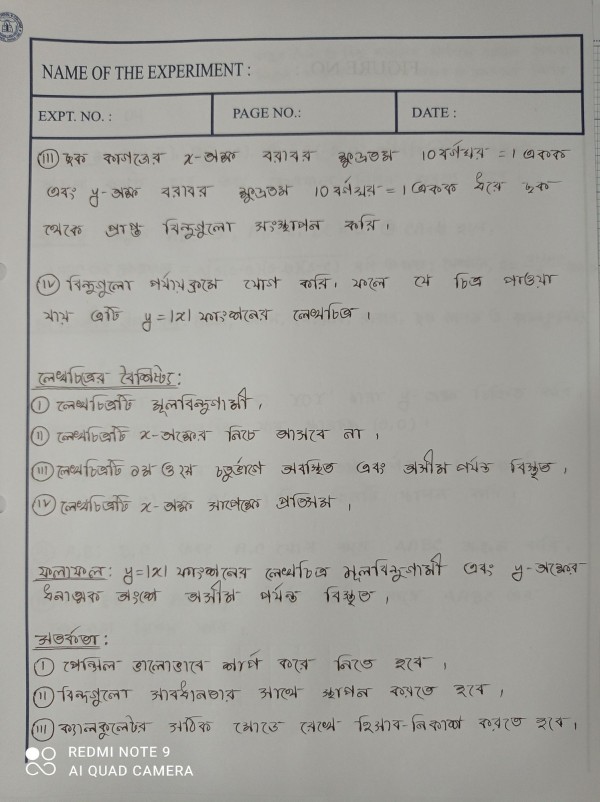 NAME OF THE EXPERIMENT :
EXPT. NO. :
PAGE NO.:
DATE :
(III) ছক কাগজের x-অক্ষ বরাবর ক্ষুদ্রতম 10 বর্গঘর = 1 একক
এবং y-অক্ষ বরাবর ক্ষুদ্রতম 10 বর্গঘর = 1 একক ধরে ছক
থেকে প্রাপ্ত বিন্দুগুলো সংস্থাপন করি।
(IV) বিন্দুগুলো পর্যায়ক্রমে যোগ করি। ফলে যে চিত্র পাওয়া
যায় এটি y=|x| ফাংশনের লেখচিত্র।
লেখচিত্রের বৈশিষ্ট্য:
(I) লেখচিত্রটি মূলবিন্দুগামী।
(II) লেখচিত্রটি x-অক্ষের নিচে আসবে না।
(III) লেখচিত্রটি ১ম ও ২য় চতুর্ভাগে অবস্থিত এবং অসীম পর্যন্ত বিস্তৃত।
(IV) লেখচিত্রটি x-অক্ষ সাপেক্ষে প্রতিসম।
ফলাফল: y=|x| ফাংশনের লেখচিত্র মূলবিন্দুগামী এবং y-অক্ষের
ধনাত্মক অংশে অসীম পর্যন্ত বিস্তৃত।
সতর্কতা:
(I) পেন্সিল ভালোভাবে শার্প করে নিতে হবে।
(II) বিন্দুগুলো সাবধানতার সাথে স্থাপন করতে হবে।
(III) ক্যালকুলেটর সঠিক মোডে রেখে হিসাব-নিকাশ করতে হবে।
REDMI NOTE 9
AI QUAD CAMERA